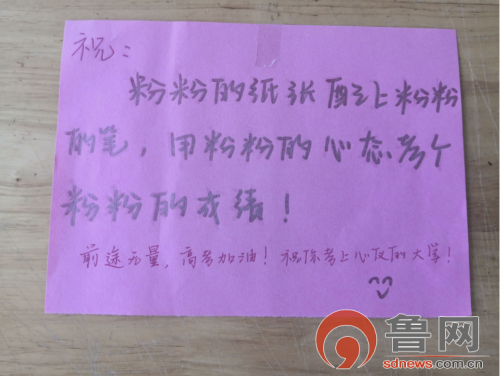 祝：
粉粉的纸张配上粉粉
的笔，用粉粉的心态考个
粉粉的成绩！
前途无量，高考加油！祝你考上心仪的大学！
鲁网
sdnews.com.cn